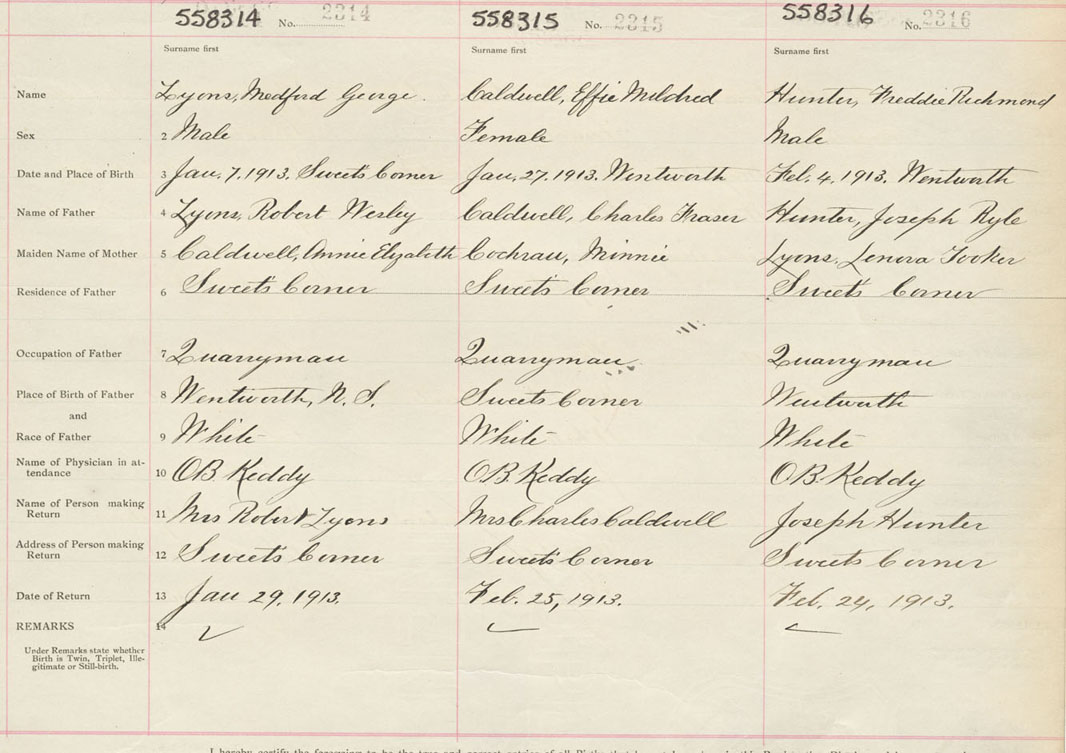 558314 No. 2314 558315 No. 2315 558316 No. 2316
Surname first Surname first Surname first
Name Lyons, Medford George. Caldwell, Effie Mildred Hunter, Freddie Richmond
Sex 2 Male Female Male
Date and Place of Birth 3 Jan. 7, 1913. Sweet's Corner Jan. 27. 1913. Wentworth Feb. 4. 1913. Wentworth
Name of Father 4 Lyons, Robert Wesley Caldwell, Charles Fraser Hunter, Joseph Ryle
Maiden Name of Mother 5 Caldwell, Annie Elizabeth Cochran, Minnie Lyons, Lenora Tooker
Residence of Father 6 Sweet's Corner Sweet's Corner Sweet's Corner
Occupation of Father 7 Quarryman Quarryman Quarryman
Place of Birth of Father 8 Wentworth, N. S. Sweets Corner Wentworth
and
Race of Father 9 White White White
Name of Physician in at-
tendance 10 OB Keddy OB Keddy OB Keddy
Name of Person making
Return 11 Mrs Robert Lyons Mrs Charles Caldwell Joseph Hunter
Address of Person making
Return 12 Sweet's Corner Sweet's Corner Sweets Corner
Date of Return 13 Jan 29. 1913. Feb. 25, 1913. Feb. 24, 1913.
REMARKS 14
Under Remarks state whether
Birth is Twin, Triplet, Ille-
gitimate or Still-birth.
I hereby certify the foregoing to be the true and correct entries of all Births